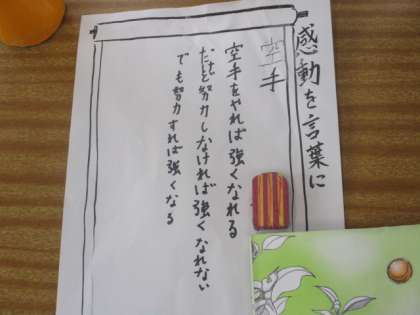 感動を言葉に
空手
空手をやれば強くなれる
だけど努力しなければ強くなれない
でも努力すれば強くなる